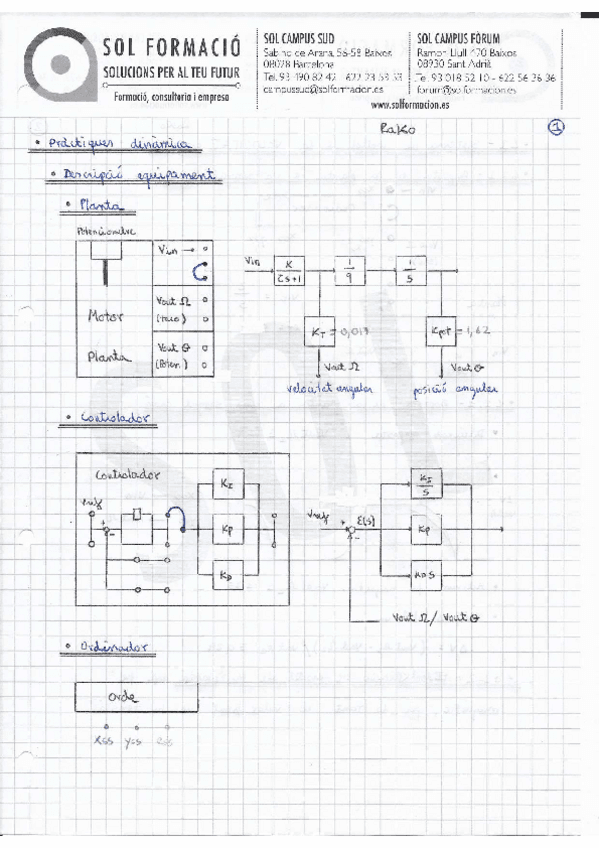 SOL FORMACIÓ
SOLUCIONS PER AL TEU FUTUR
Formació, consultoria i empresa
SOL CAMPUS SUD
Sabino de Arana, 56-58 Baixos
08028 Barcelona
SOL CAMPUS FÒRUM
Ramon Llull 470 Baixos
08930 Sant Adrià
Tel. 93 018 52 10 - 622 56 36 36
www.solformacion.es
Pako
1
• Pràctiques dinàmica
• Descripció equipament
• Planta
Potenciometre
Vin →
Vout Ω
(taco)
Vout θ
(Poten.)
Motor
Planta
Vin
K
τs+1
1
9
1
s
KT = 0,013
Kpot = 1,62
Vout Ω
Vout θ
velocitat angular
posició angular
• Controlador
Controlador
Vref
+
-
KI
Kp
KD
Vref
+
-
E(s)
KI
s
Kp
KD S
Vout Ω / Vout θ
• Ordinador
Orde